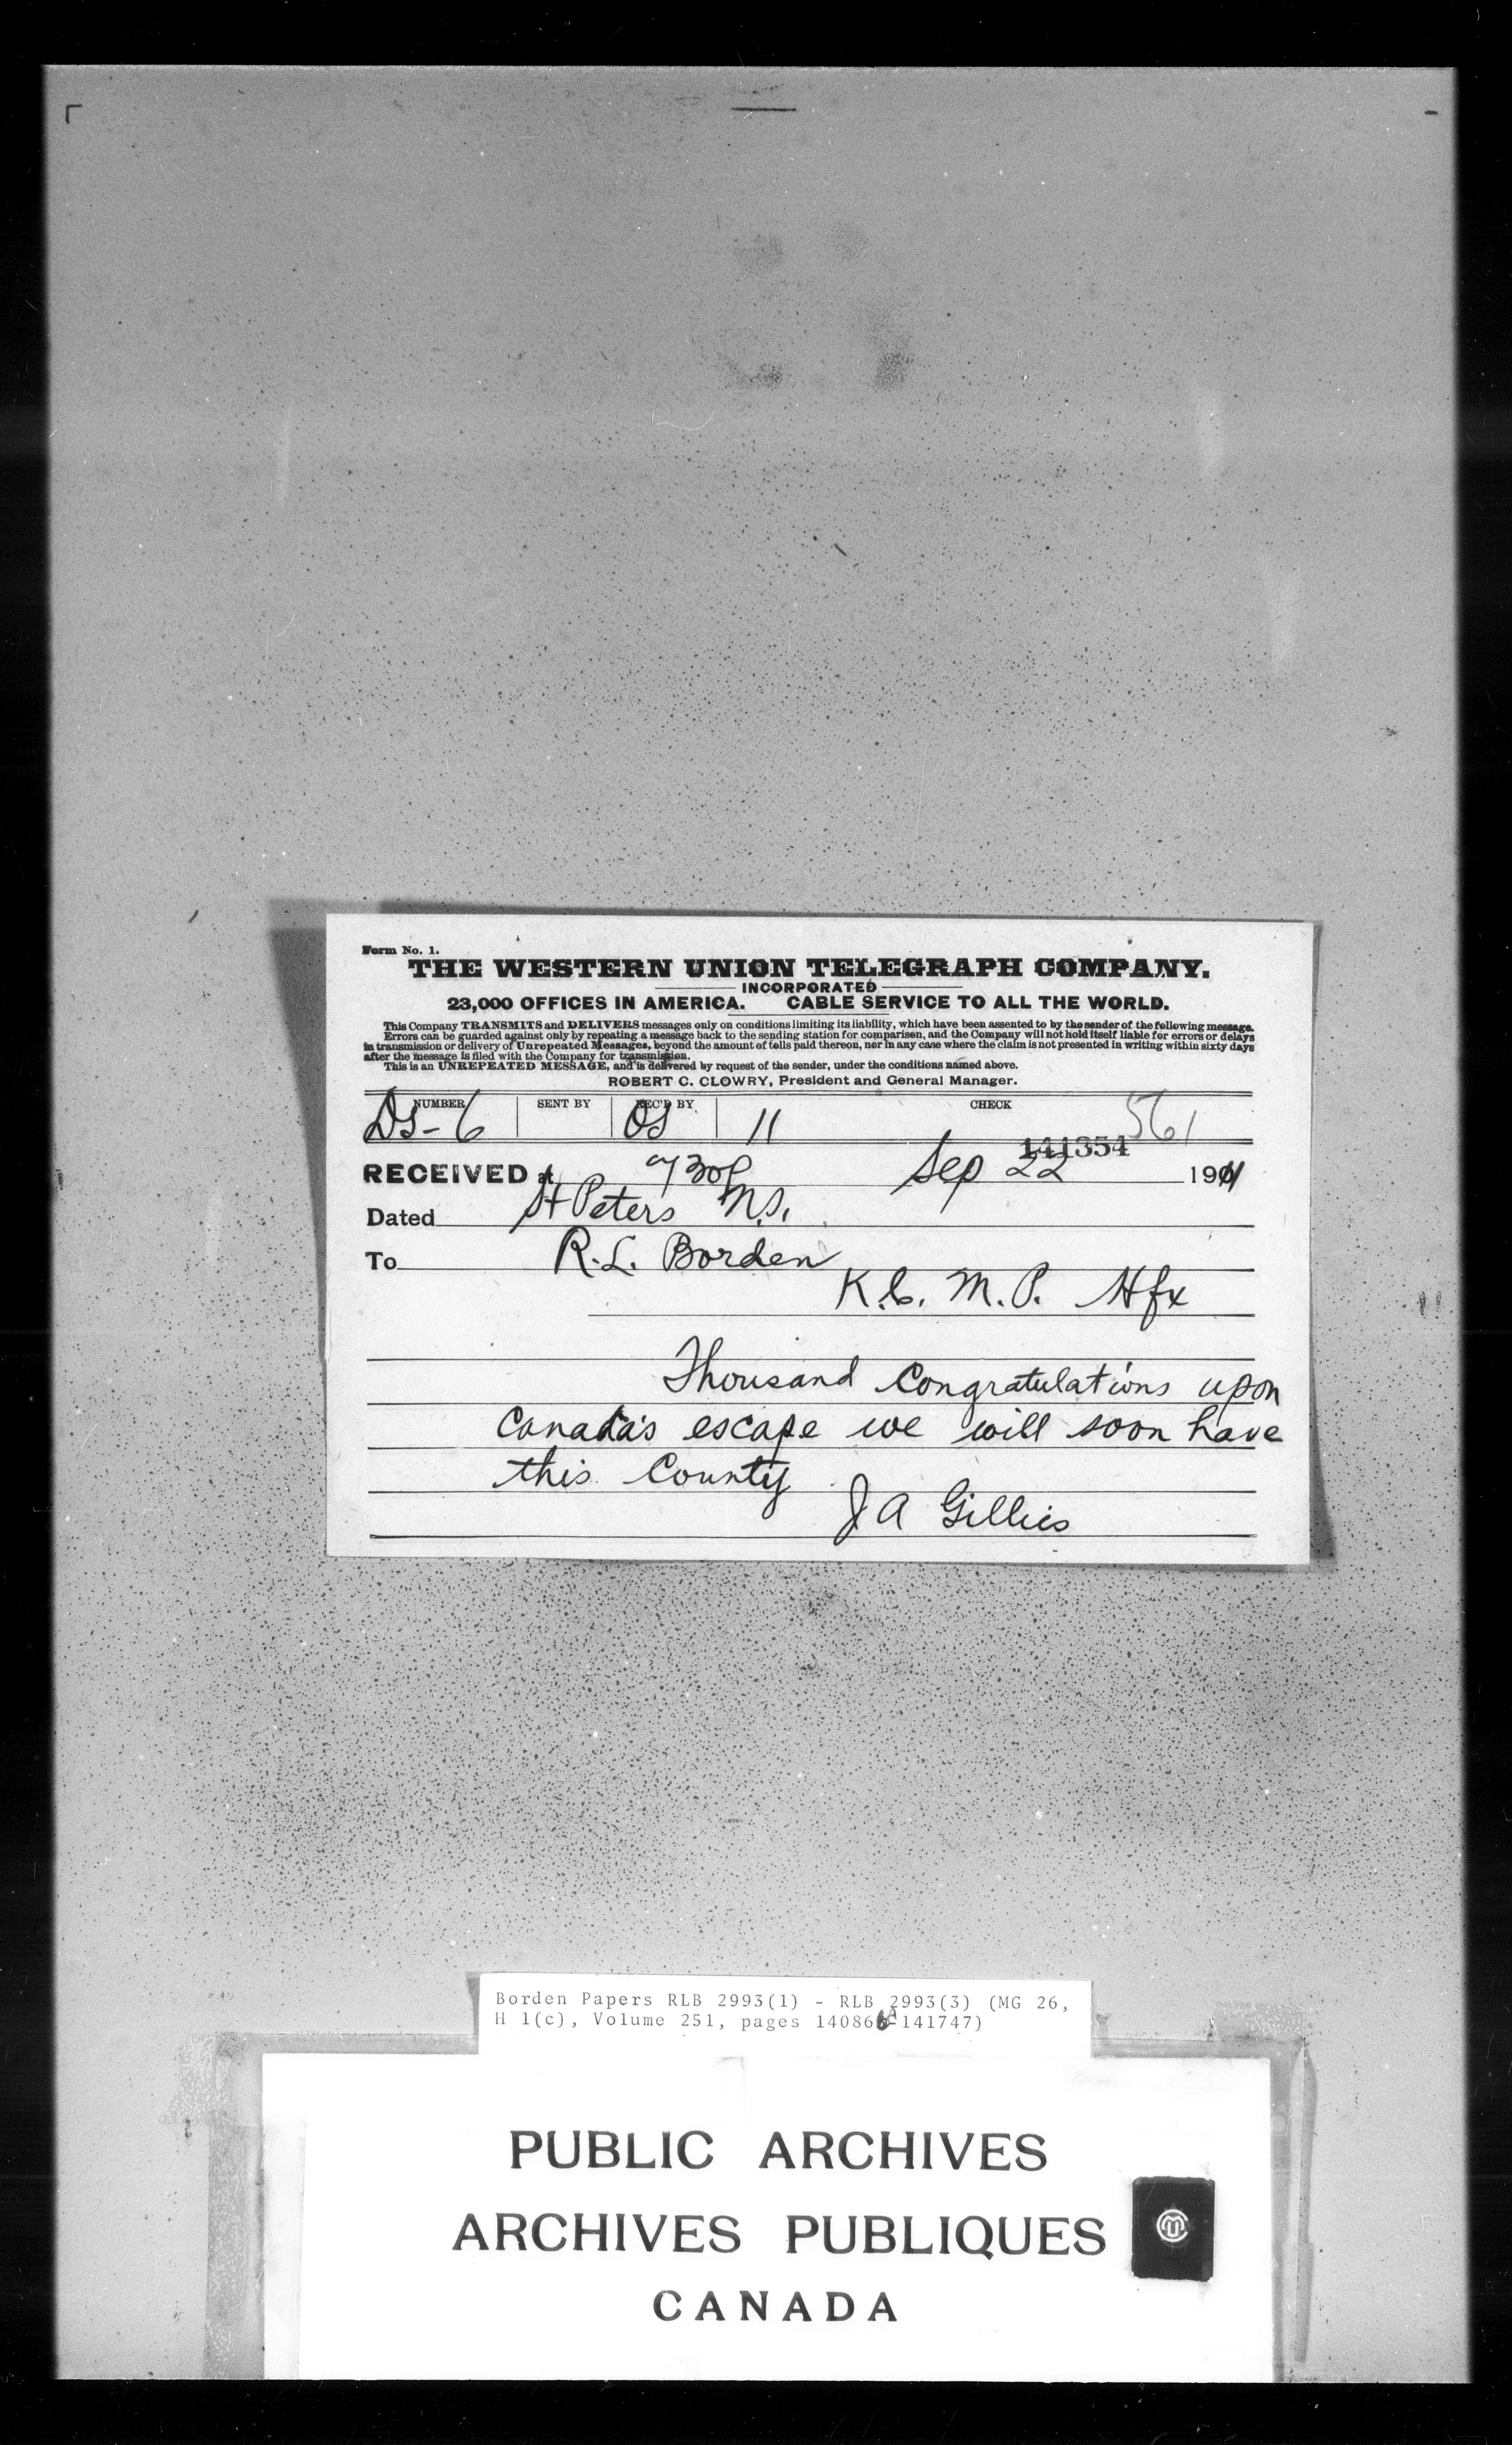 Form No. 1.
THE WESTERN UNION TELEGRAPH COMPANY.
INCORPORATED
23,000 OFFICES IN AMERICA. CABLE SERVICE TO ALL THE WORLD.
This Company TRANSMITS and DELIVERS messages only on conditions limiting its liability, which have been assented to by the sender of the following message.
Errors can be guarded against only by repeating a message back to the sending station for comparison, and the Company will not hold itself liable for errors or delays
in transmission or delivery of Unrepeated Messages, beyond the amount of tolls paid thereon, nor in any case where the claim is not presented in writing within sixty days
after the message is filed with the Company for transmission.
This is an UNREPEATED MESSAGE, and is delivered by request of the sender, under the conditions named above.
ROBERT C. CLOWRY, President and General Manager.
NUMBER SENT BY REC'D BY CHECK
DS-6 OS 11 561
141354
RECEIVED at 730p Sep 22 1911
Dated St Peters N.S.
To R.L. Borden
K.C. M.P. Hfx
Thousand Congratulations upon
Canada's escape we will soon have
this County
J A Gillies
Borden Papers RLB 2993(1) - RLB 2993(3) (MG 26,
H 1(c), Volume 251, pages 140866A-141747)
PUBLIC ARCHIVES
ARCHIVES PUBLIQUES
CANADA